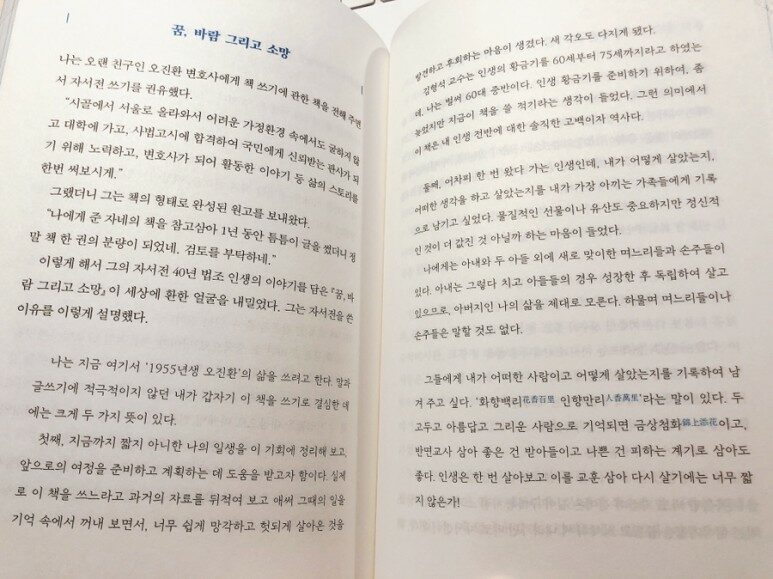 꿈, 바람 그리고 소망
나는 오랜 친구인 오진환 변호사에게 책 쓰기에 관한 책을 전해 주면
서 자서전 쓰기를 권유했다.
“시골에서 서울로 올라와서 어려운 가정환경 속에서도 굴하지 않
고 대학에 가고, 사법고시에 합격하여 국민에게 신뢰받는 판사가 되
기 위해 노력하고, 변호사가 되어 활동한 이야기 등 삶의 스토리를
한번 써보시게.”
그랬더니 그는 책의 형태로 완성된 원고를 보내왔다.
“나에게 준 자네의 책을 참고삼아 1년 동안 틈틈이 글을 썼더니 정
말 책 한 권의 분량이 되었네. 검토를 부탁하네.”
이렇게 해서 그의 자서전 40년 법조 인생의 이야기를 담은 『꿈, 바
람 그리고 소망』이 세상에 환한 얼굴을 내밀었다. 그는 자서전을 쓴
이유를 이렇게 설명했다.
나는 지금 여기서 ‘1955년생 오진환’의 삶을 쓰려고 한다. 말과
글쓰기에 적극적이지 않던 내가 갑자기 이 책을 쓰기로 결심한 데
에는 크게 두 가지 뜻이 있다.
첫째, 지금까지 짧지 아니한 나의 일생을 이 기회에 정리해 보고,
앞으로의 여정을 준비하고 계획하는 데 도움을 받고자 함이다. 실제
로 이 책을 쓰느라고 과거의 자료를 뒤적여 보고 애써 그때의 일을
기억 속에서 꺼내 보면서, 너무 쉽게 망각하고 헛되게 살아온 것을
발견하고 후회하는 마음이 생겼다. 새 각오도 다지게 됐다.
김형석 교수는 인생의 황금기를 60세부터 75세까지라고 하였는
데, 나는 벌써 60대 중반이다. 인생 황금기를 준비하기 위하여, 좀
늦었지만 지금이 책을 쓸 적기라는 생각이 들었다. 그런 의미에서
이 책은 내 인생 전반에 대한 솔직한 고백이자 역사다.
둘째, 어차피 한 번 왔다 가는 인생인데, 내가 어떻게 살았는지,
어떠한 생각을 하고 살았는지를 내가 가장 아끼는 가족들에게 기록
으로 남기고 싶었다. 물질적인 선물이나 유산도 중요하지만 정신적
인 것이 더 값진 것 아닐까 하는 마음이 들었다.
나에게는 아내와 두 아들 외에 새로 맞이한 며느리들과 손주들이
있다. 아내는 그렇다 치고 아들들의 경우 성장한 후 독립하여 살고
있으므로, 아버지인 나의 삶을 제대로 모른다. 하물며 며느리들이나
손주들은 말할 것도 없다.
그들에게 내가 어떠한 사람이고 어떻게 살았는지를 기록하여 남
겨 주고 싶다. ‘화향백리花香百里 인향만리人香萬里’라는 말이 있다. 두
고두고 아름답고 그리운 사람으로 기억되면 금상첨화錦上添花이고,
반면교사 삼아 좋은 건 받아들이고 나쁜 건 피하는 계기로 삼아도
좋다. 인생은 한 번 살아보고 이를 교훈 삼아 다시 살기에는 너무 짧
지 않은가!